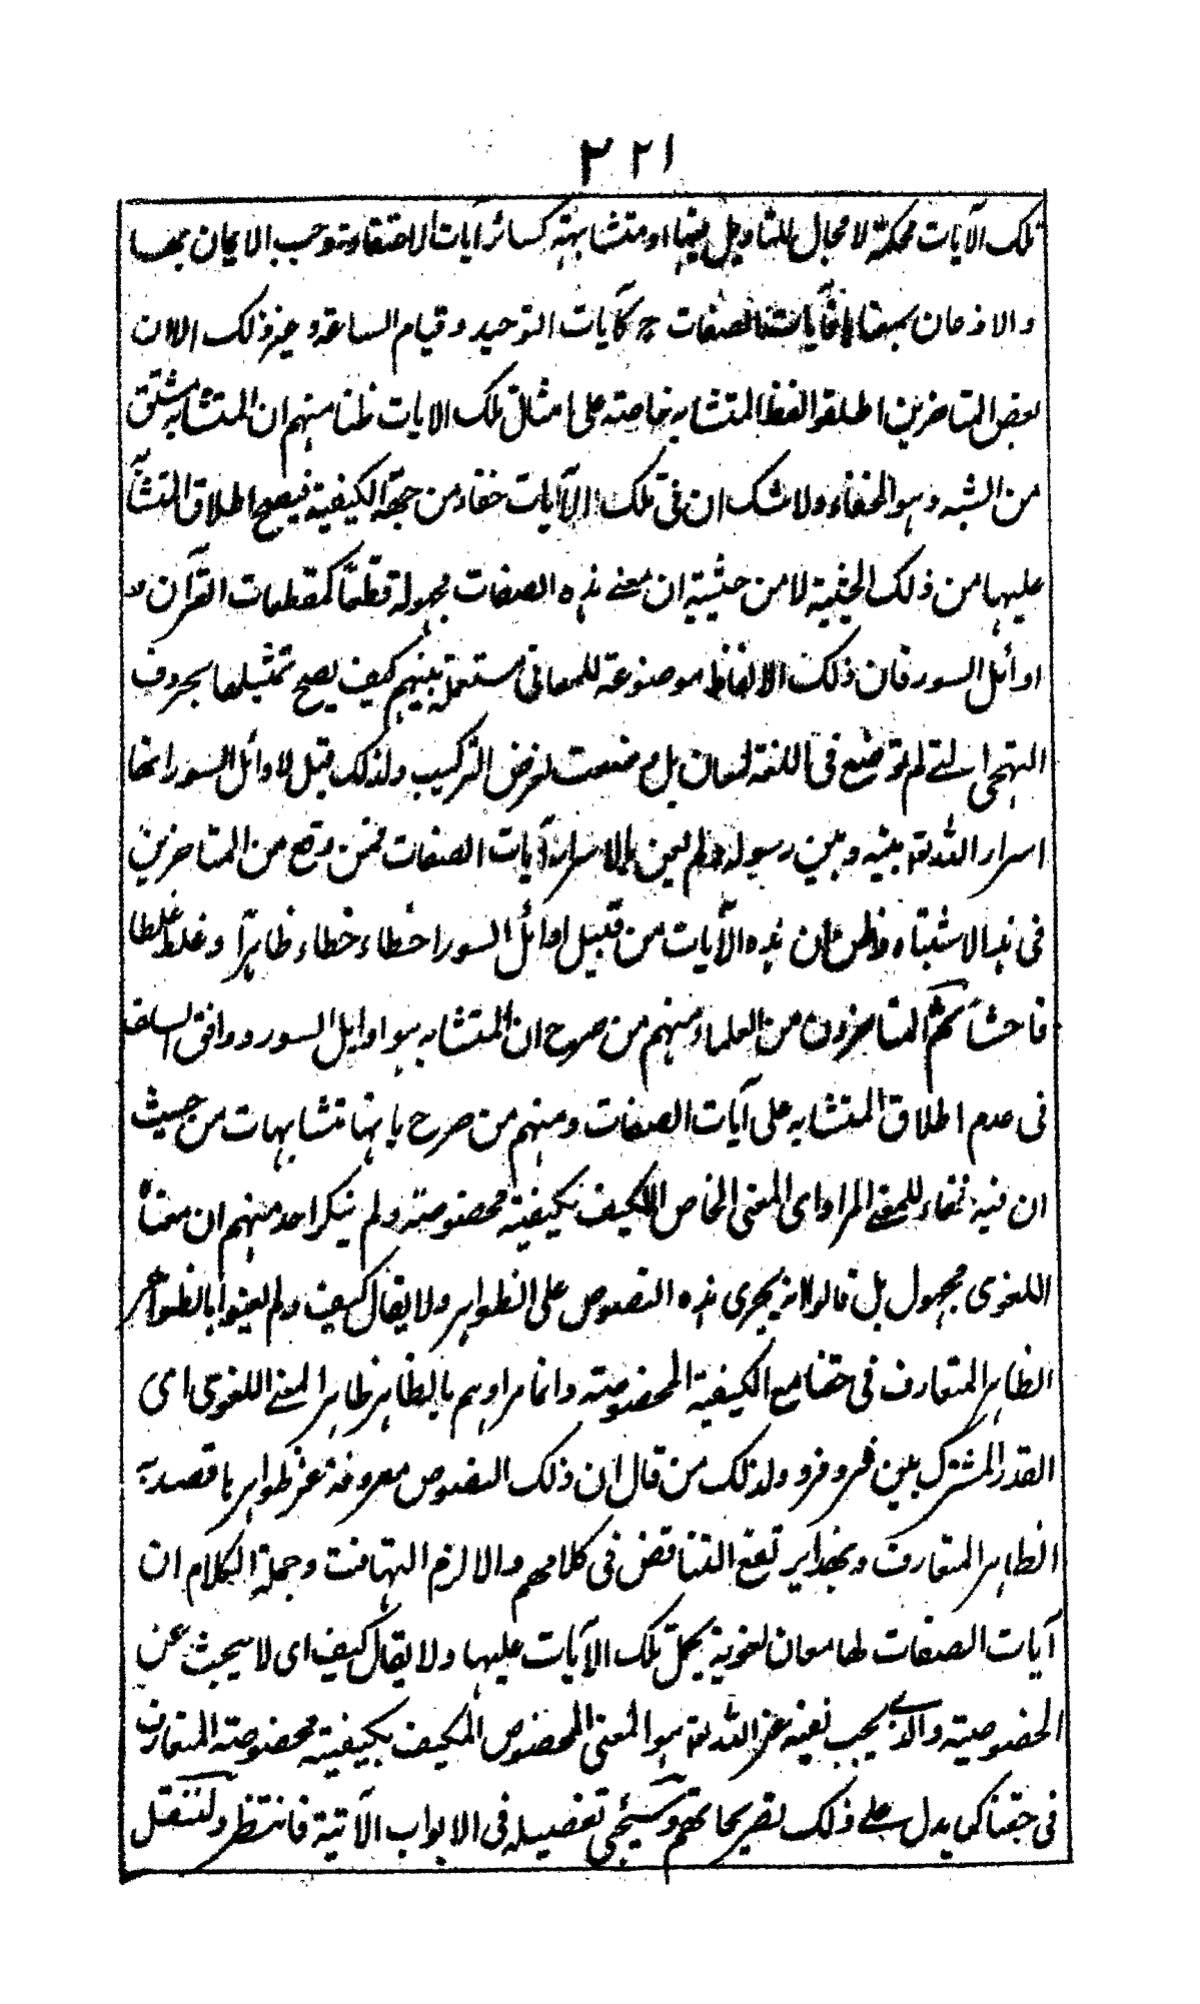 ٣٢١
تلك الآيات محكمة لا مجال للتاويل فيها او متشابهة كسائر آيات الاعتقاد توجب الايمان بها
والاذعان بمعناها فآيات الصفات ح كآيات التوحيد وقيام الساعة وغير ذلك الا ان
بعض المتاخرين اطلقوا لفظ المتشابه خاصة على امثال تلك الايات ظنا منهم ان المتشابه مشتق
من الشبه وهو الخفاء ولا شك ان فى تلك الآيات خفاء من جهة الكيفية فيصح اطلاق المتشابه
عليها من ذلك الحيثية لا من حيثية ان معنے هذه الصفات مجهولة قطعا كمقطعات القرآن و
اوائل السور فان ذلك الالفاظ موضوعة للمعانى مستعملة بينهم كيف يصح تمثيلها بحروف
التهجى التے لم توضع فى اللغة لمعان بل وضعت لغرض التركيب ولذلك قيل لاوائل السور انها
اسرار الله تع بينه وبين رسوله ولم يعن بالاسرار آيات الصفات فمن وقع من المتاخرين
فى هذا الاشتباه وظن ان هذه الآيات من قبيل اوائل السور اخطاء خطاء ظاهرا وغلط غلطا
فاحشا ثم المتاخرون من العلماء منهم من صرح ان المتشابه هو اوايل السور ووافق السلف
فى عدم اطلاق المتشابه على آيات الصفات ومنهم من صرح بانها متشابهات من حيث
ان فيه خفاء للمعنے المراد اى المعنى الخاص المكيف بكيفية مخصوصة ولم ينكر احد منهم ان معناه
اللغوى مجهول بل قالوا يجرى هذه النصوص على الظواهر ولا يقال كيف ولم يعنوا بالظواهر
الظاهر المتعارف فى حقنا مع الكيفية المخصوصة وانما مرادهم بالظاهر ظاهر المعنے اللغوى اى
القدر المشترك بين فرد وفرد ولذلك من قال ان ذلك النصوص معروفة عن ظواهرها قصد به
الظاهر المتعارف وبهذا يرتفع التناقض فى كلامهم والا لزم التهافت وجملة الكلام ان
آيات الصفات لها معان لغوية يحمل تلك الآيات عليها ولا يقال كيف اى لا يبحث عن
الخصوصية والذے يجب نفيه عن الله تع هو المعنى المخصوص المكيف بكيفية مخصوصة المتعارف
فى حقنا كما يدل علے ذلك تصريحاتهم وسيجئ تفصيله فى الابواب الآتية فانتظر ولننقل